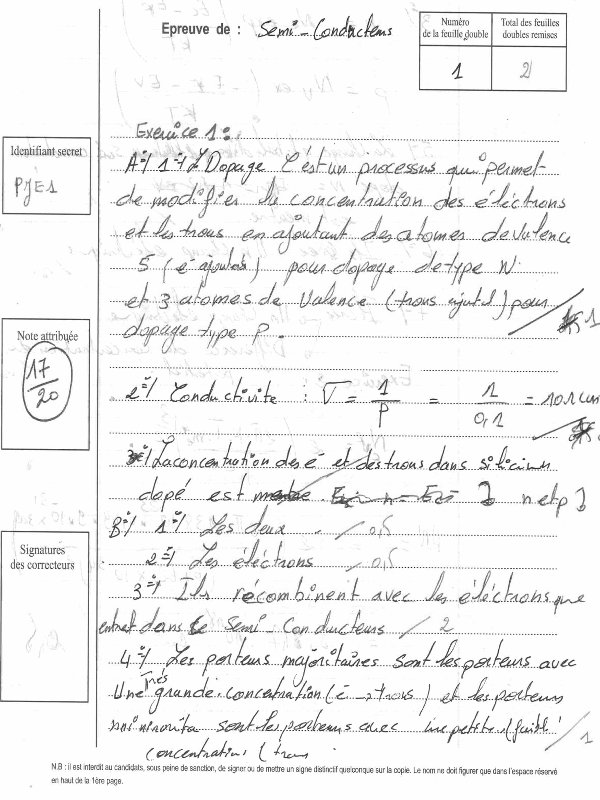 Epreuve de : Semi-Conducteurs
Numéro de la feuille double
Total des feuilles doubles remises
1
2
Exercice 1 :
Identifiant secret
PJE1
A°/ 1°/ Dopage C'est un processus qui permet
de modifier la concentration des éléctrons
et les trous en ajoutant des atomes de valence
5 (e⁻ ajoutés) pour dopage de type N
et 3 atomes de Valence (trous ajuté) pour
dopage type P.
1
Note attribuée
17/20
2°/ Conductivite : σ = 1/ρ = 1/0,1 = 10
3°/ La concentration des e⁻ et des trous dans silicium
dopé est n et p
B°/ 1°/ Les deux / 0,5
2°/ Les éléctrons / 0,5
Signatures des correcteurs
3°/ Ils récombinent avec les éléctrons que
entret dans le semi-Conducteurs / 2
4°/ Les porteurs majoritaires sont les porteurs avec
Une très grande concentration (e⁻ → trous) et les porteurs
minorita sont les porteurs avec une petite (faible)
1
concentrations (trous
N.B : il est interdit au candidats, sous peine de sanction, de signer ou de mettre un signe distinctif quelconque sur la copie. Le nom ne doit figurer que dans l'espace réservé
en haut de la 1ère page.